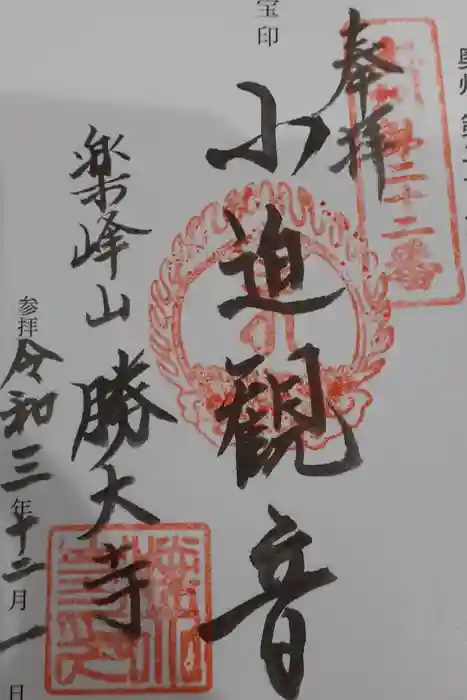 奉拝
宝印
小迫観音
楽峰山 勝大寺
参拝 令和三年十二月一日